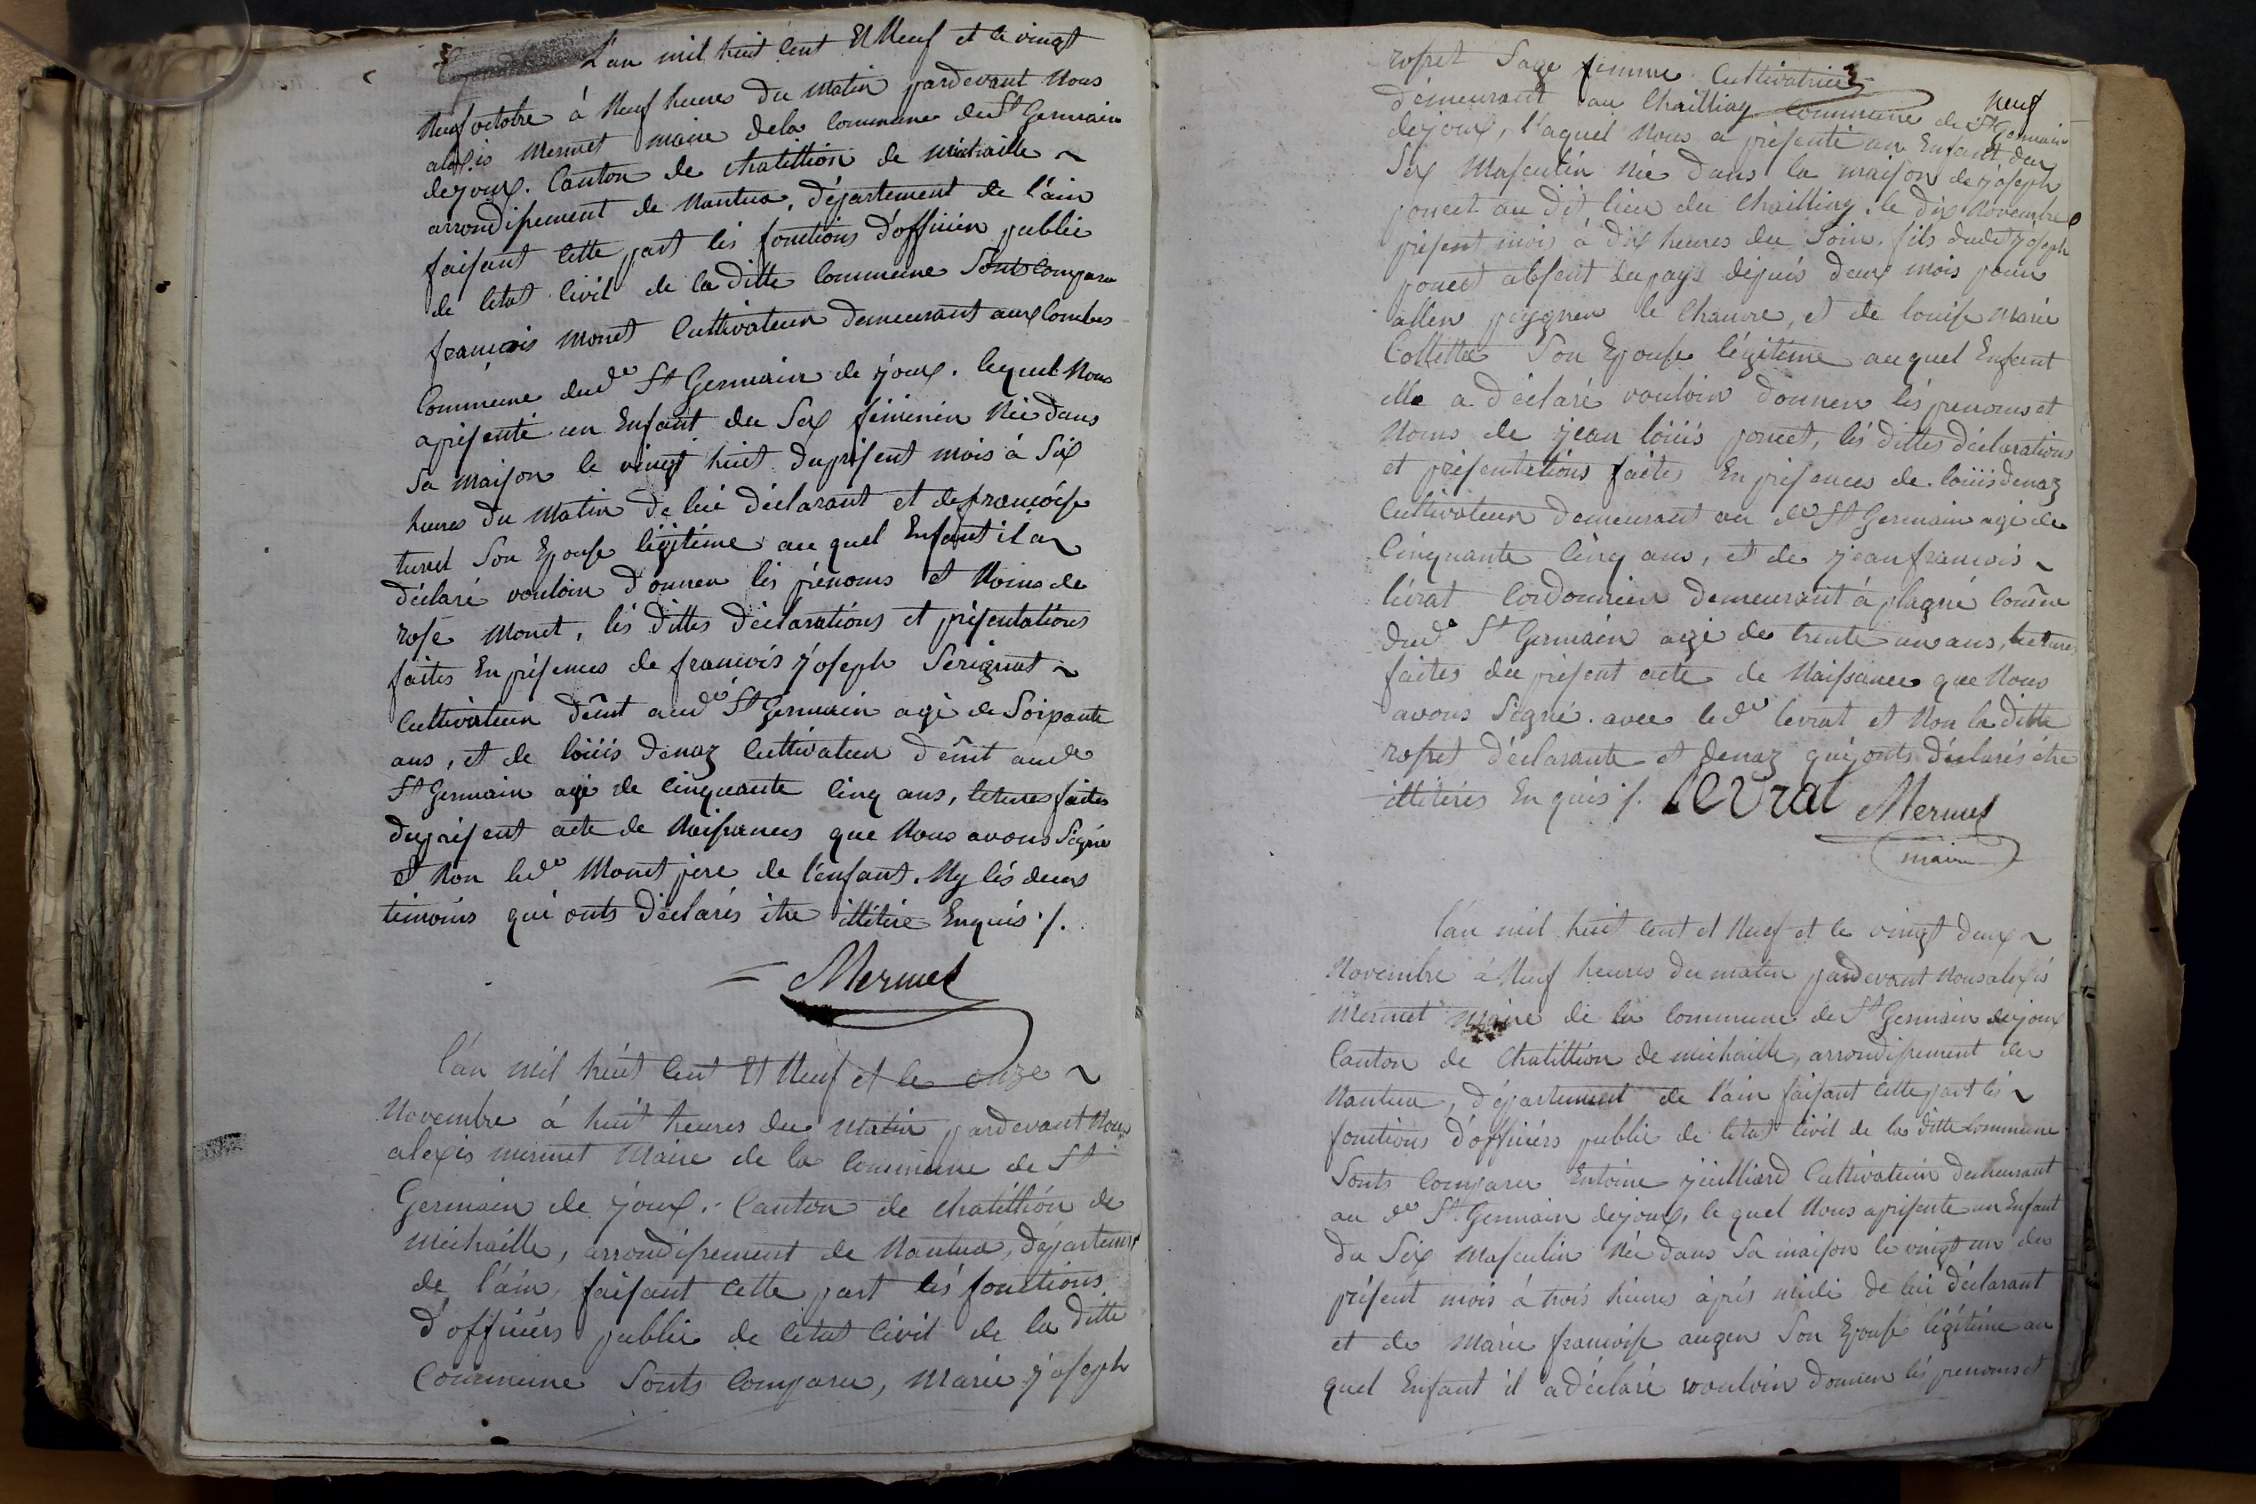 L'an mil huit cent Et Neuf et le vingt
Neuf octobre à Neuf heures du matin pardevant Nous
alexis Mermet maire dela Commune de St Germain
dejoux. Canton de chatillion de michaille ~
arrondissement de Nantua, département de l'ain
faisant cette part lés fonctions d'officier public
de letat civil de la ditte Commune Sonts Comparu
françois Monet Cultivateur demeurant aux Combes
Commune dud.t St Germain de joux. lequel Nous
aprésenté un Enfant du Sex féminin Née dans
Sa maison le vingt huit duprésent mois à Six
heures du Matin de lui déclarant et defrançoise
turet Son Epouse légitime au quel Enfant il a
déclaré vouloir donner lés prénoms et Noms de
rose Monet, lés dittes déclarations et présentations
faites En présences de françois joseph Serignat ~
Cultivateur demt aud.t St Germain agé de Soixante
ans, et de loüis denaz Cultivateur demt aud.t
St Germain agé de Cinquante Cinq ans, letures faites
duprésent acte de Naissances que Nous avons Signé
et Non led.t Monet pere de l'enfant. Ny lés deux
témoins qui onts déclarés étre illitéré Enquis ./.
Mermet
l'án mil huit Cent Et Neuf et le onze ~
Novembre à huit heures du Matin pardevant Nous
alexis mermet Maire de la Commune de St
Germain de joux. Canton de chatillion de
michaille, arrondissement de Nantua, départemt
de l'ain, faisant Cette part lés fonctions
d'officiérs public de létat Civil de la ditte
Commune Sonts Comparu, Marie joseph
rosset Sage femme Cultivatrice
demeurant au Chailliay Commune de St Germain
Neuf
dejoux, l'aquel Nous a présenté un Enfant du
Sex Masculin Née dans la maison de joseph
poncet au dit lieu du Chailliay, le dix Novembre
présent mois à dix heures du Soir. fils dudt joseph
poncet absent du pays depuis deux mois pour
aller peygner le Chanvre, et de louise Marie
Collette Son Epouse légitime auquel Enfant
elle a déclaré vouloir donner lés prenoms et
Noms de jean loüis poncet, lés dittes déclarations
et présentations faites En présences de loüis denaz
Cultivateur demeurant au dt St Germain agé de
Cinquante Cinq ans, et de jean francois ~
lévrat Cordonnier demeurant à plagne Comune
dud.t St Germain agé de trente un ans, letures
faites du présent acte de Naissance que Nous
avons Signé. avec led.t levrat et Non la ditte
rosset déclarante et denaz qui onts déclarés étre
illitérés Enquis ./. levrat Mermet
maire
l'án mil huit cent et Neuf et le vingt deux ~
Novembre à Neuf heures du matin pardevant Nous alexis
Mermet Maire de la Commune de St Germain dejoux
Canton de Chatillion de michaille, arrondissement de
Nantua, département de l'ain faisant Cette part lés ~
fonctions d'officiérs public de létat Civil de la ditte Commune
Sonts Comparu Entoine juilliard Cultivateur demeurant
au dt St Germain dejoux, le quel Nous aprésenté un Enfant
du Sex Masculin Née dans Sa maison le vingt un du
présent mois à trois heures après midi de lui déclarant
et de Marie françoise auger Son Epouse légitime au
quel Enfant il a déclaré vouloir donner lés prenoms et